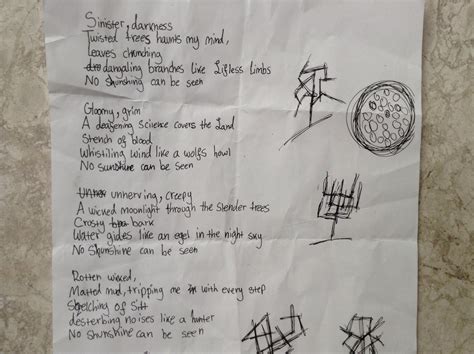 Sinister, darkness
Twisted trees haunts my mind,
Leaves chunding
dangaling branches like Lifless limbs
No Shunshing can be seen
Gloomy, grim
A deafening science covers the Land
Stench of blood
Whistiling wind like a wolfs howl
No sunshine can be seen
unnerving, creepy
A wicked moonlight through the slender trees
Crosty bark
Water gides like an egel in the night sky
No Shunshine can be seen
Rotten wicked,
Matted mud, tripping me with every step
Skelching of Silt
desterbing noises like a hunter
No Shunshine can be seen